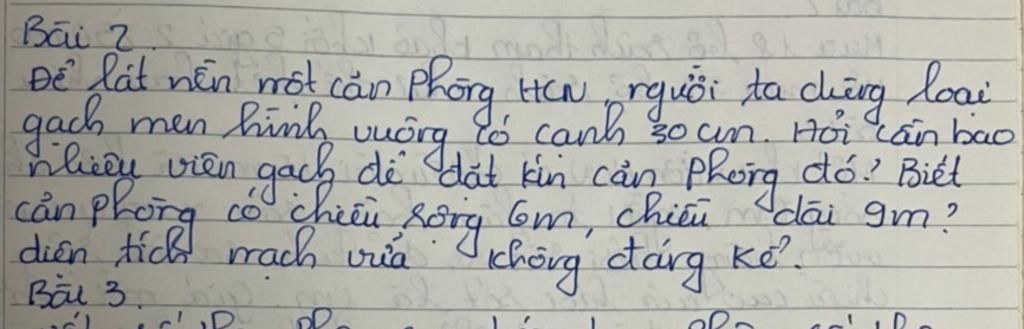 Bài 2.
Để lát nền một căn phòng HCN, người ta dùng loại
gạch men hình vuông có cạnh 30 cm. Hỏi cần bao
nhiêu viên gạch để đặt kín căn phòng đó? Biết
căn phòng có chiều rộng 6m, chiều dài 9m?
diện tích mạch vữa không đáng kể.
Bài 3.